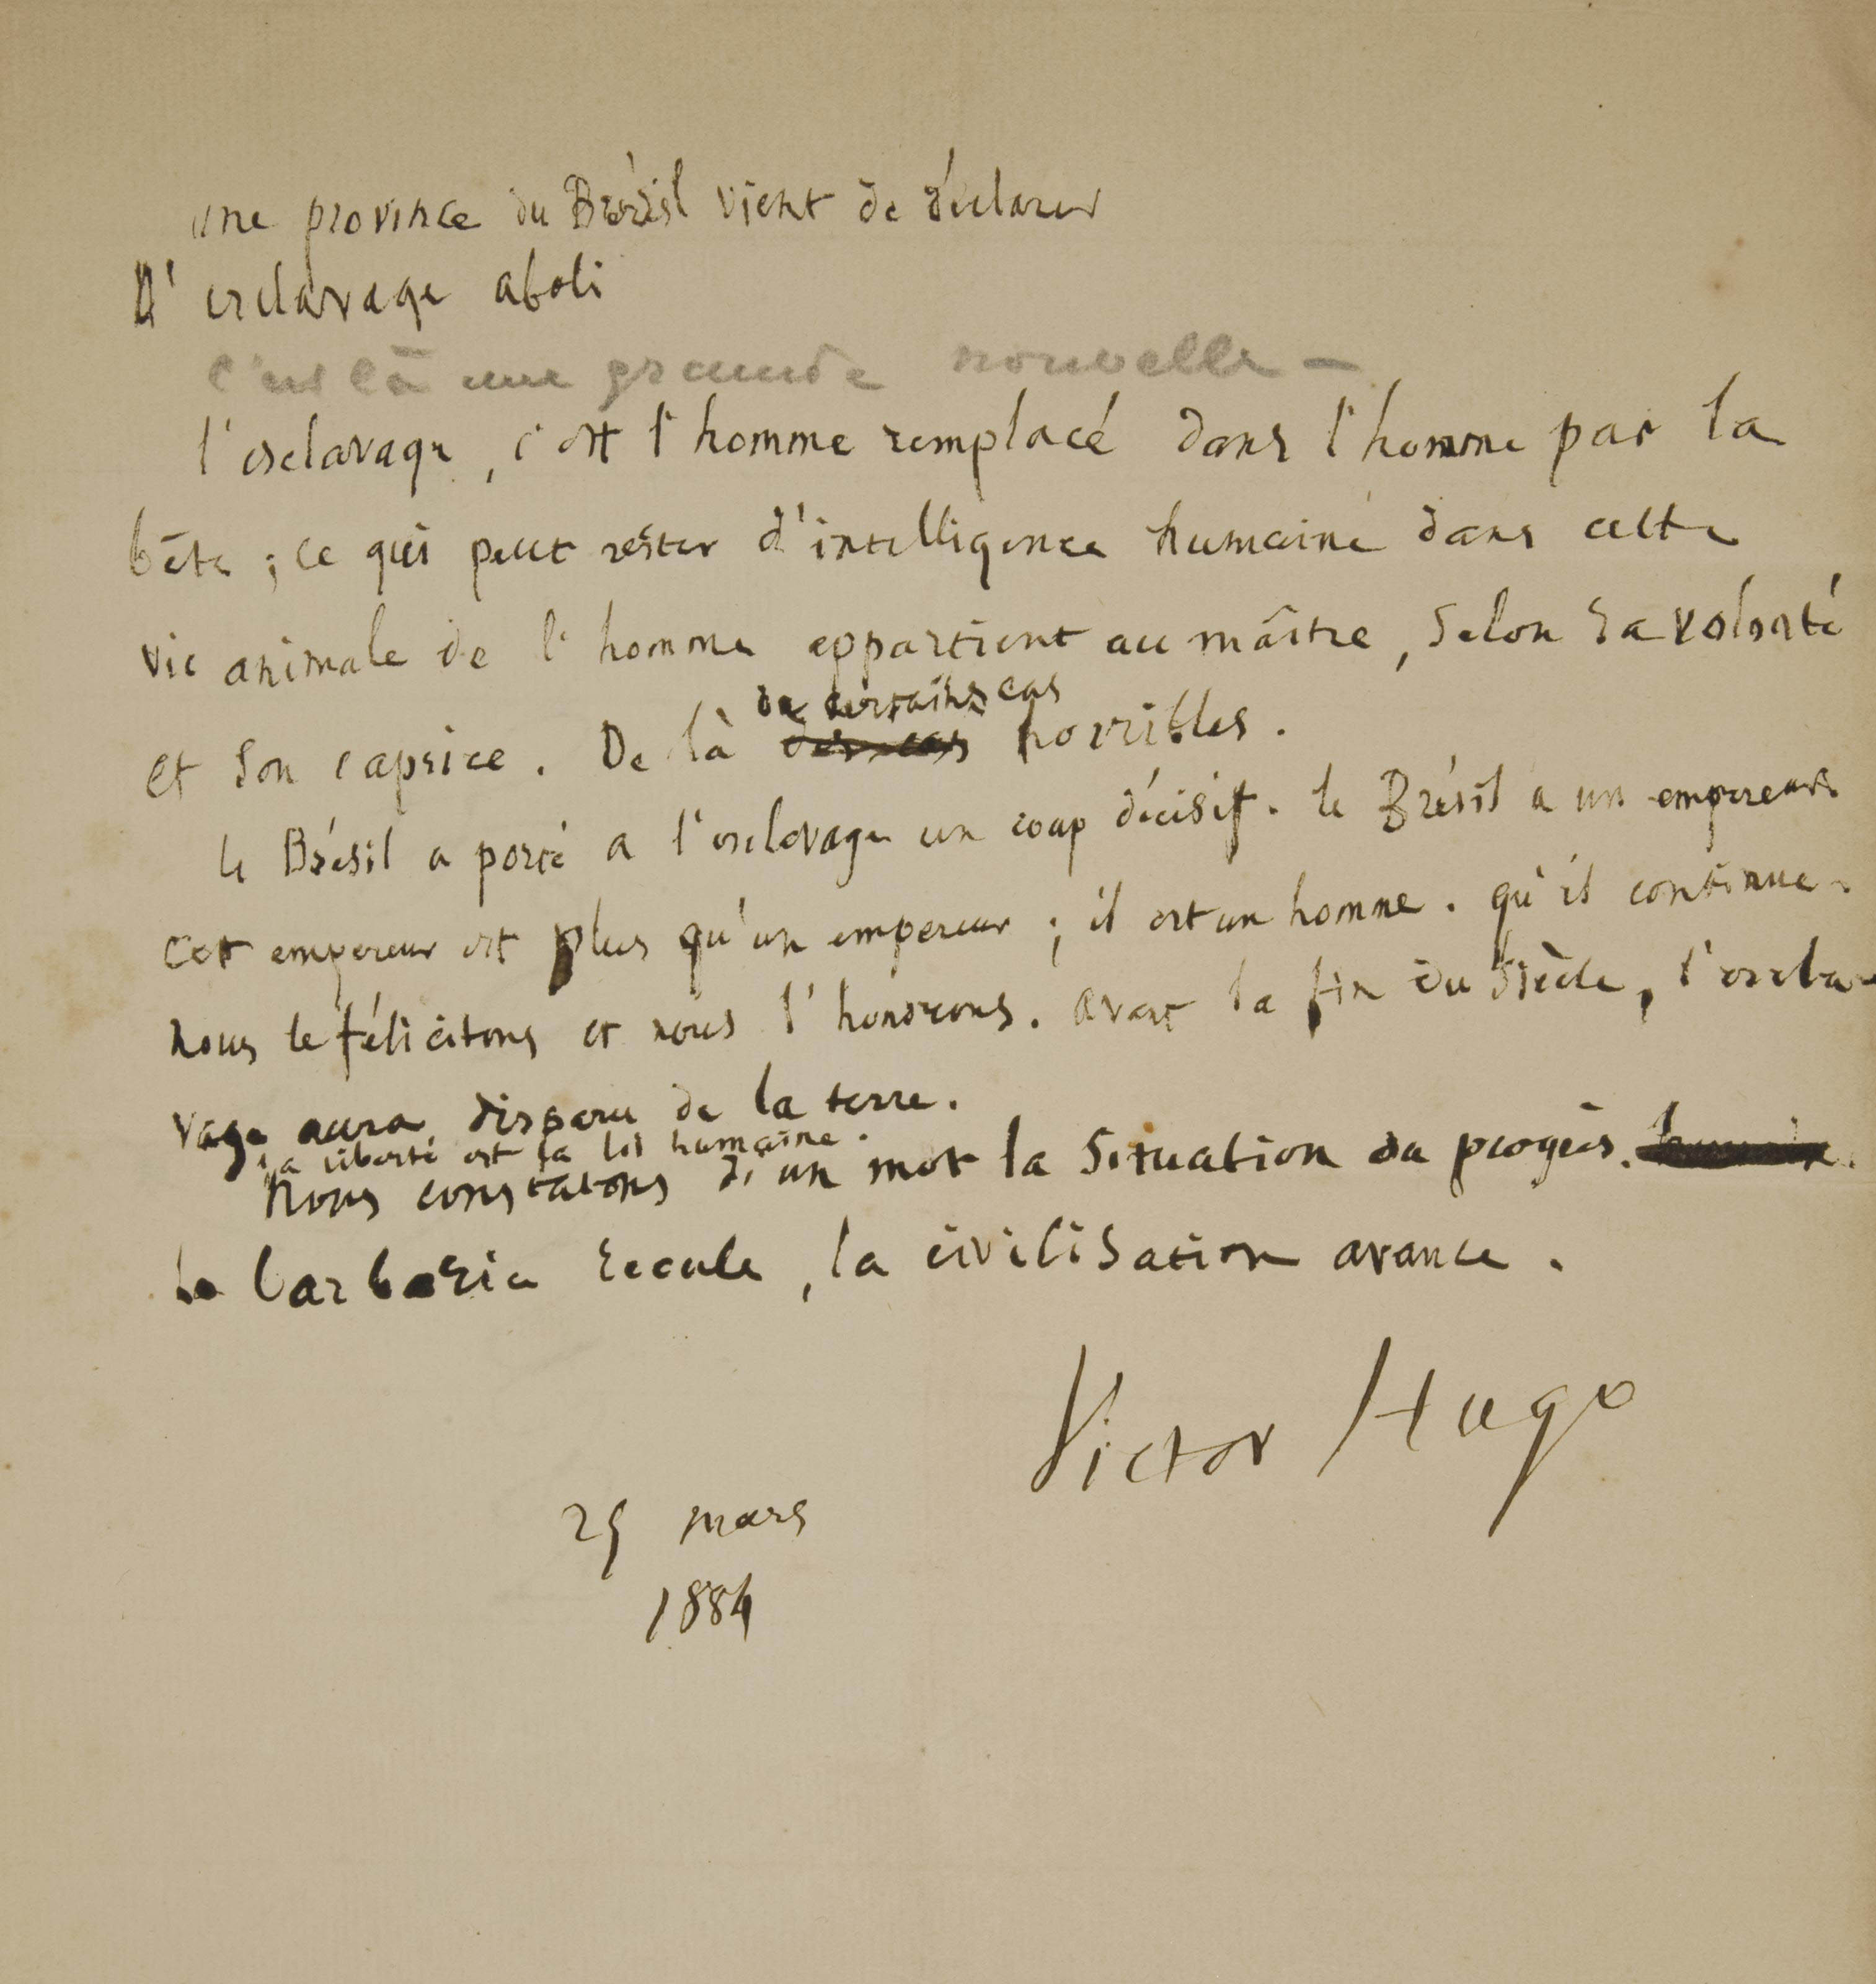 une province du Brésil vient de déclarer
l'esclavage aboli
c'est là une grande nouvelle –
l'esclavage, c'est l'homme remplacé dans l'homme par la
bête ; ce qui peut rester d'intelligence humaine dans cette
vie animale de l'homme appartient au maître, selon sa volonté
de certains cas
et son caprice. De là des cas horribles.
le Brésil a porté a l'esclavage un coup décisif. le Brésil a un empereur.
cet empereur est plus qu'un empereur ; il est un homme. qu'il continue.
nous le félicitons et nous l'honorons. avant la fin du siècle, l'escla-
vage aura disparu de la terre.
la liberté est la loi humaine.
Nous constatons d'un mot la situation du progrès.
la barbarie recule, la civilisation avance.
Victor Hugo
25 mars
1884